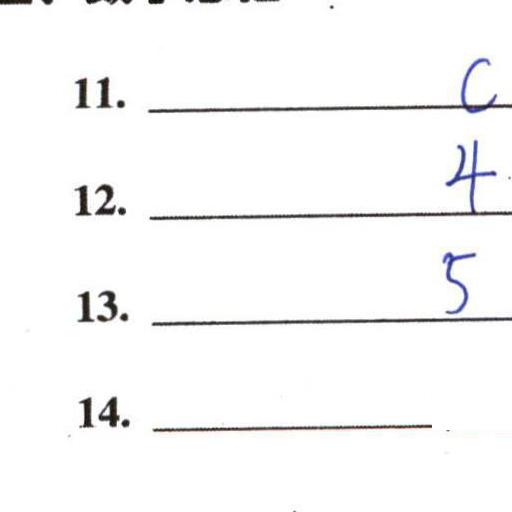 11. C
12. 4
13. 5
14.